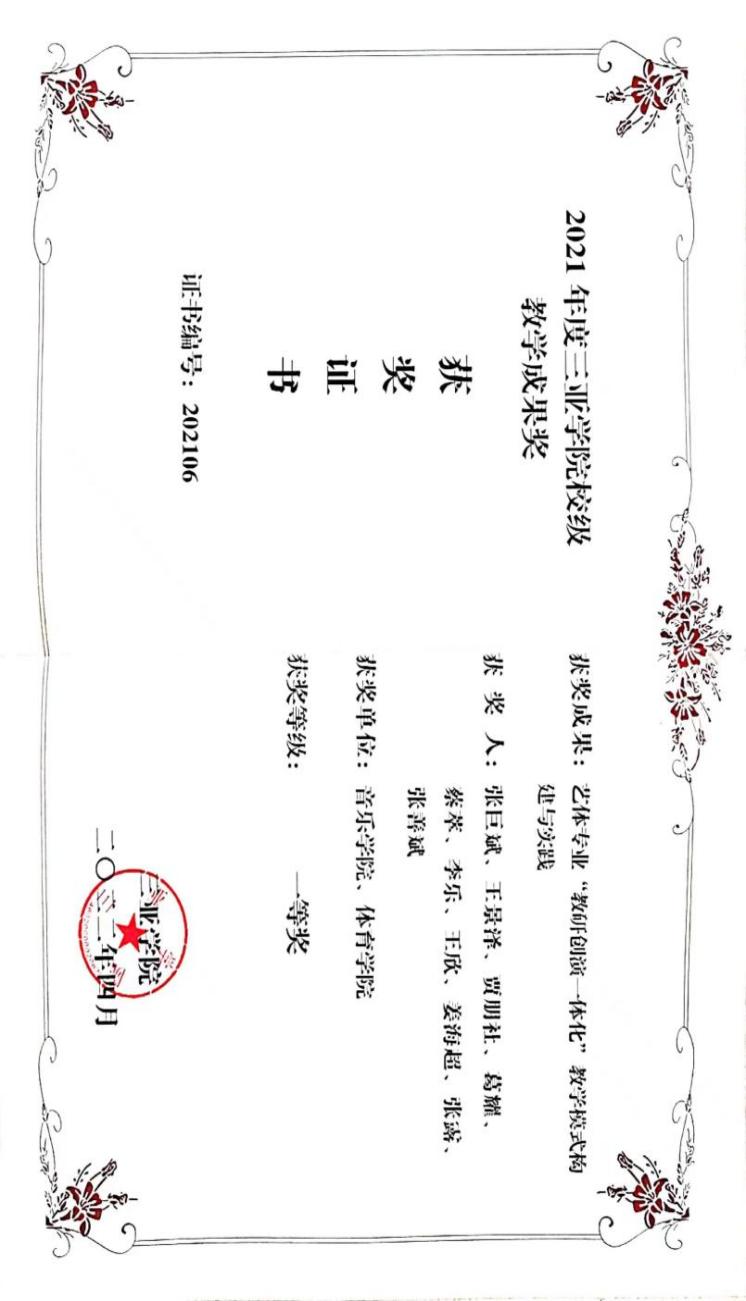 2021 年度三亚学院校级
教学成果奖
获
奖
证
书
证书编号：202106
获奖成果：艺体专业“教研创演一体化”教学模式构
建与实践
获 奖 人：张巨斌、王景泽、贾朋社、葛耀、
蔡萃、李乐、王欣、姜海超、张露、
张善斌
获奖单位：音乐学院、体育学院
获奖等级： 一等奖
三亚学院
二〇二二年四月